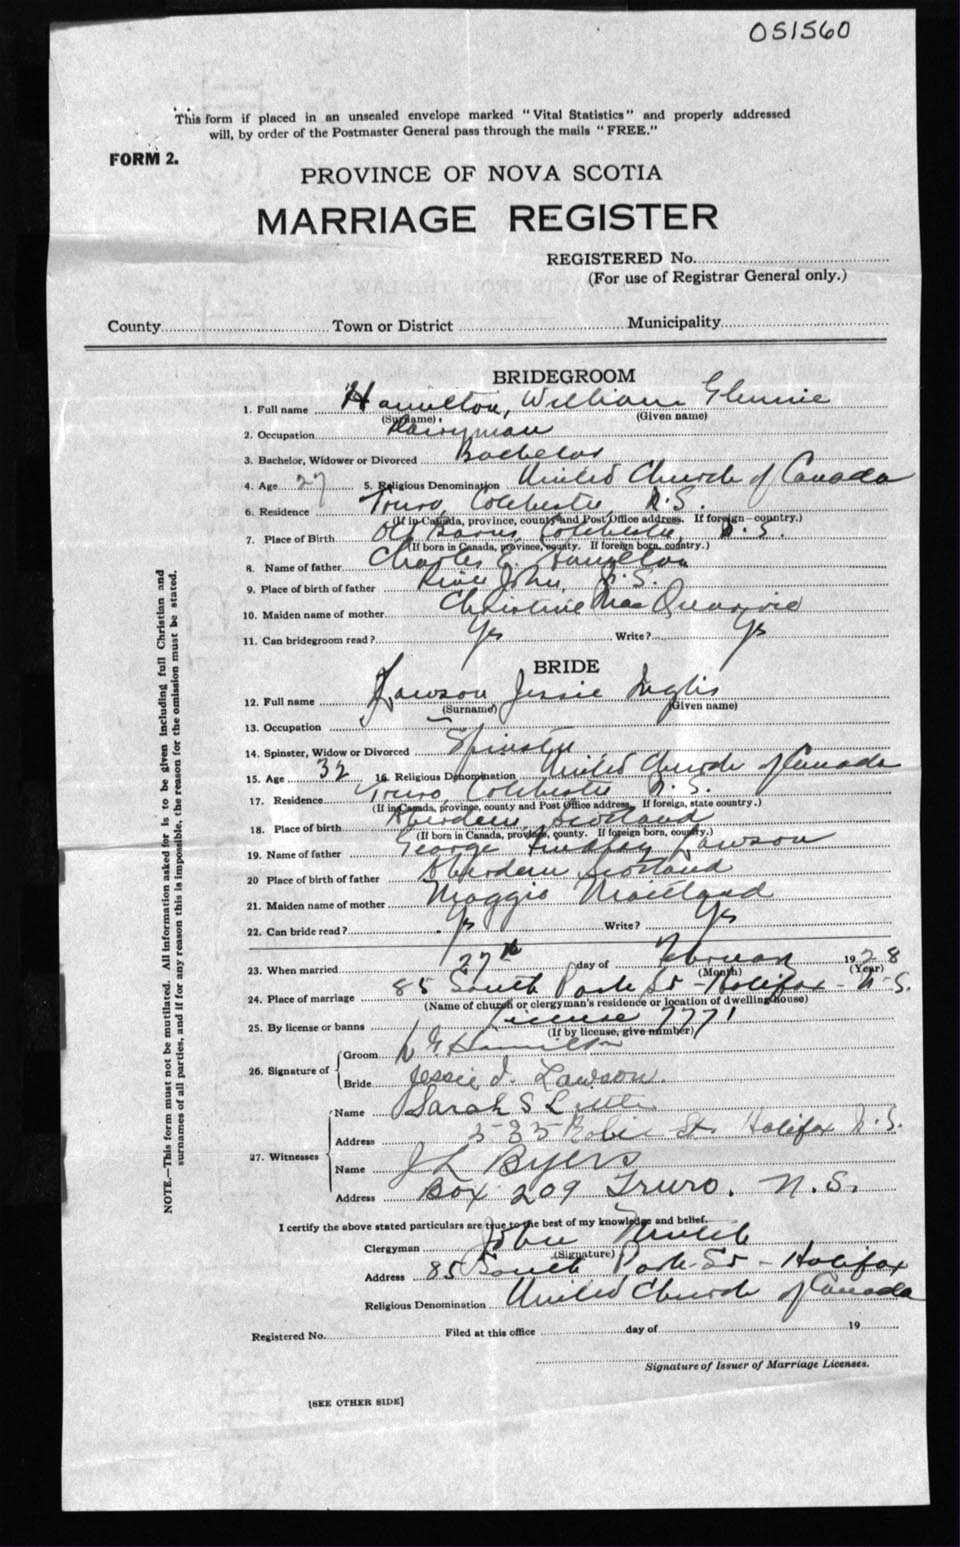 051560
This form if placed in an unsealed envelope marked "Vital Statistics" and properly addressed
will, by order of the Postmaster General pass through the mails "FREE."
FORM 2.
PROVINCE OF NOVA SCOTIA
MARRIAGE REGISTER
REGISTERED No.
(For use of Registrar General only.)
County Town or District Municipality
BRIDEGROOM
1. Full name Hamilton, William Glennie
(Surname) (Given name)
2. Occupation Dairyman
3. Bachelor, Widower or Divorced Bachelor
4. Age 27 5. Religious Denomination United Church of Canada
6. Residence Truro, Colchester, N.S.
(If in Canada, province, county and Post Office address. If foreign—country.)
7. Place of Birth Old Barns, Colchester, N.S.
(If born in Canada, province, county. If foreign born, country.)
8. Name of father Charles E. Hamilton
9. Place of birth of father River John, N.S.
10. Maiden name of mother Christine MacQuarrie
11. Can bridegroom read? Yes Write? Yes
BRIDE
12. Full name Lawson Jessie Inglis
(Surname) (Given name)
13. Occupation
14. Spinster, Widow or Divorced Spinster
15. Age 32 16. Religious Denomination United Church of Canada
17. Residence Truro, Colchester N.S.
(If in Canada, province, county and Post Office address, If foreign, state country.)
18. Place of birth Aberdeen, Scotland
(If born in Canada, province, county. If foreign born, country.)
19. Name of father George Findlay Lawson
20 Place of birth of father Aberdeen Scotland
21. Maiden name of mother Maggie Maitland
22. Can bride read? Yes Write? Yes
23. When married 27th day of February 1928
(Month) (Year)
24. Place of marriage 85 South Park St - Halifax - N-S.
(Name of church or clergyman's residence or location of dwelling house)
25. By license or banns License 7771
(If by license, give number)
26. Signature of Groom W G Hamilton
Bride Jessie I. Lawson.
27. Witnesses Name Sarah S Little
Address St. Halifax N.S.
Name J L Byers
Address Box 209 Truro. N.S.
I certify the above stated particulars are true to the best of my knowledge and belief.
Clergyman John
(Signature)
Address 85 South Park St - Halifax
Religious Denomination United Church of Canada
Registered No. Filed at this office day of 19
Signature of Issuer of Marriage Licenses.
[SEE OTHER SIDE]
NOTE.—This form must not be mutilated. All information asked for is to be given including full Christian and
surnames of all parties, and if for any reason this is impossible, the reason for the omission must be stated.